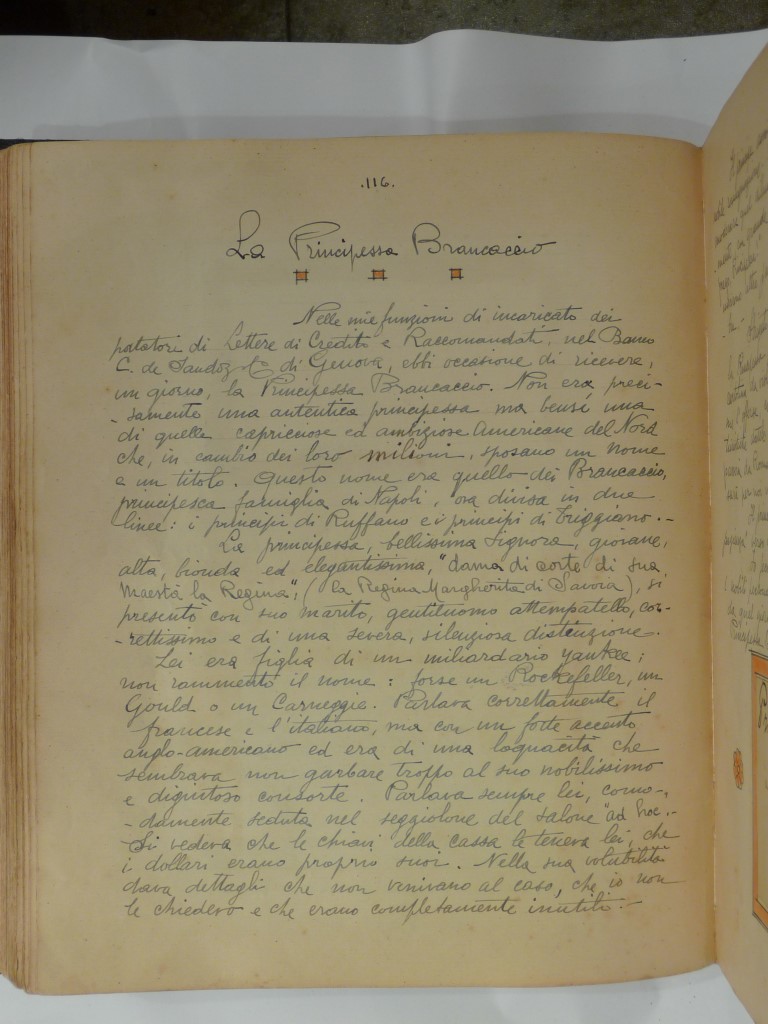 .116.
La Principessa Brancaccio
Nelle mie funzioni di incaricato dei
portatori di Lettere di Credito e Raccomandati, nel Banco
C. de Sandoz & C. di Genova, ebbi occasione di ricevere,
un giorno, la Principessa Brancaccio. Non era, preci-
-samente una autentica principessa ma bensì una
di quelle capricciose ed ambiziose Americane del Nord
che, in cambio dei loro milioni, sposano un nome
e un titolo. Questo nome era quello dei Brancaccio,
principesca famiglia di Napoli, ora divisa in due
linee: i principi di Ruffano e i principi di Triggiano.-
La principessa, bellissima signora, giovane,
alta, bionda ed elegantissima, "dama di corte di sua
Maestà la Regina", (la Regina Margherita di Savoia), si
presentò con suo marito, gentiluomo attempatello, cor-
-rettissimo e di una severa, silenziosa distinzione.
Lei era figlia di un miliardario yankee;
non rammento il nome: forse un Rockefeller, un
Gould o un Carneggie. Parlava correttamente il
francese e l'italiano, ma con un forte accento
anglo-americano ed era di una loquacità che
sembrava non garbare troppo al suo nobilissimo
e dignitoso consorte. Parlava sempre lei, como-
-damente seduta nel seggiolone del salone "ad hoc".-
Si vedeva che le chiavi della cassa le teneva lei, che
i dollari erano proprio suoi. Nella sua volubilità
dava dettagli che non venivano al caso, che io non
le chiedevo e che erano completamente inutili.-